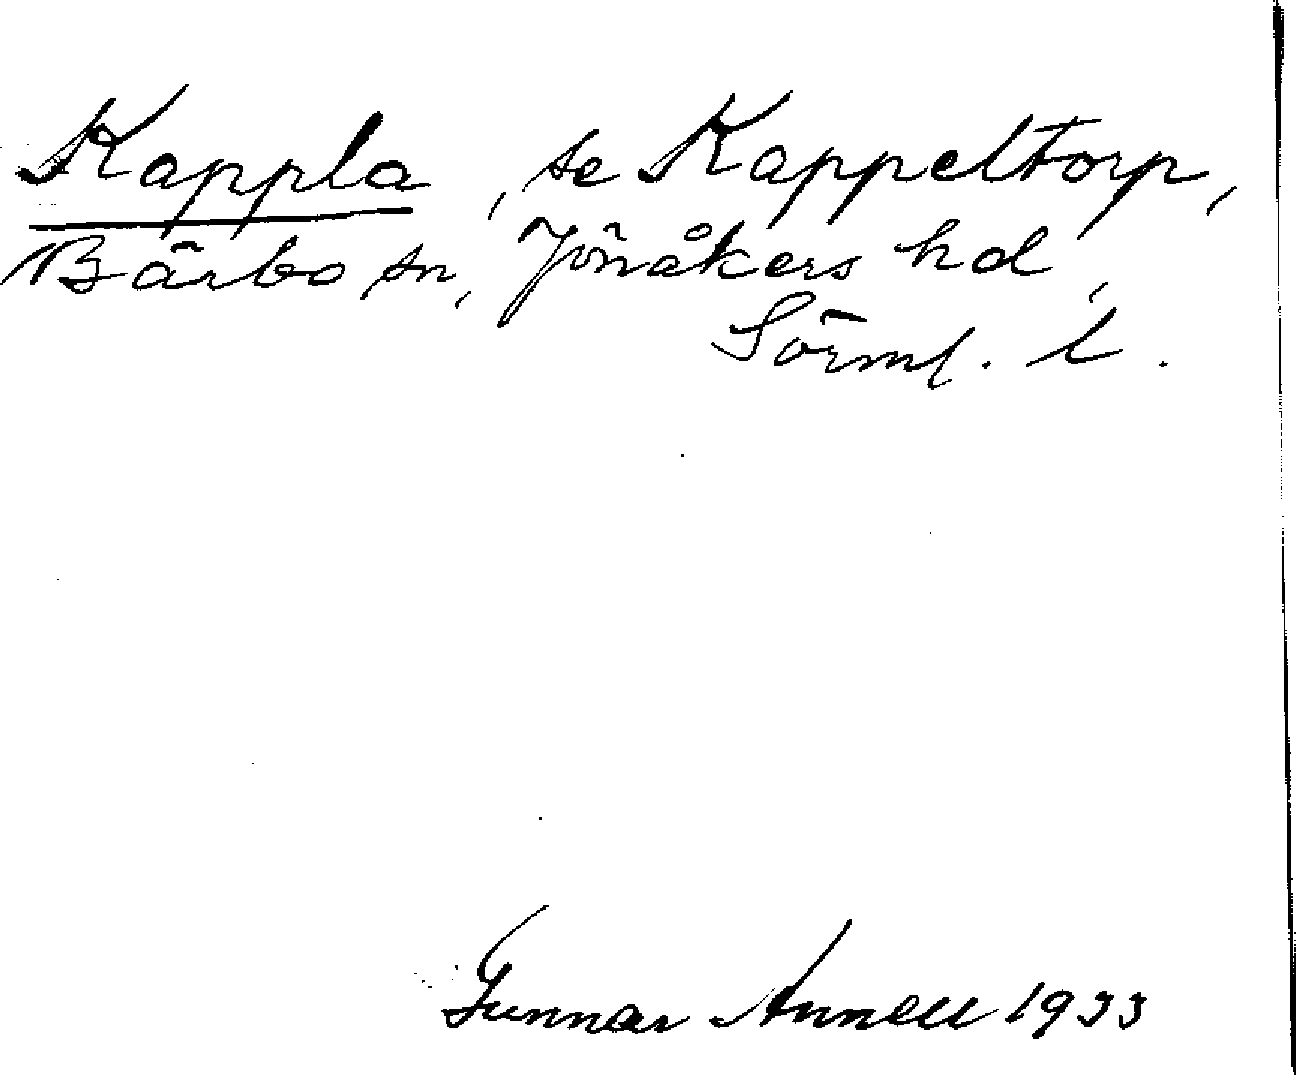 Kappla, se Kappeltorp,
Bärbo sn, Jönåkers hd,
Sörml. l.
Gunnar Annell 1933